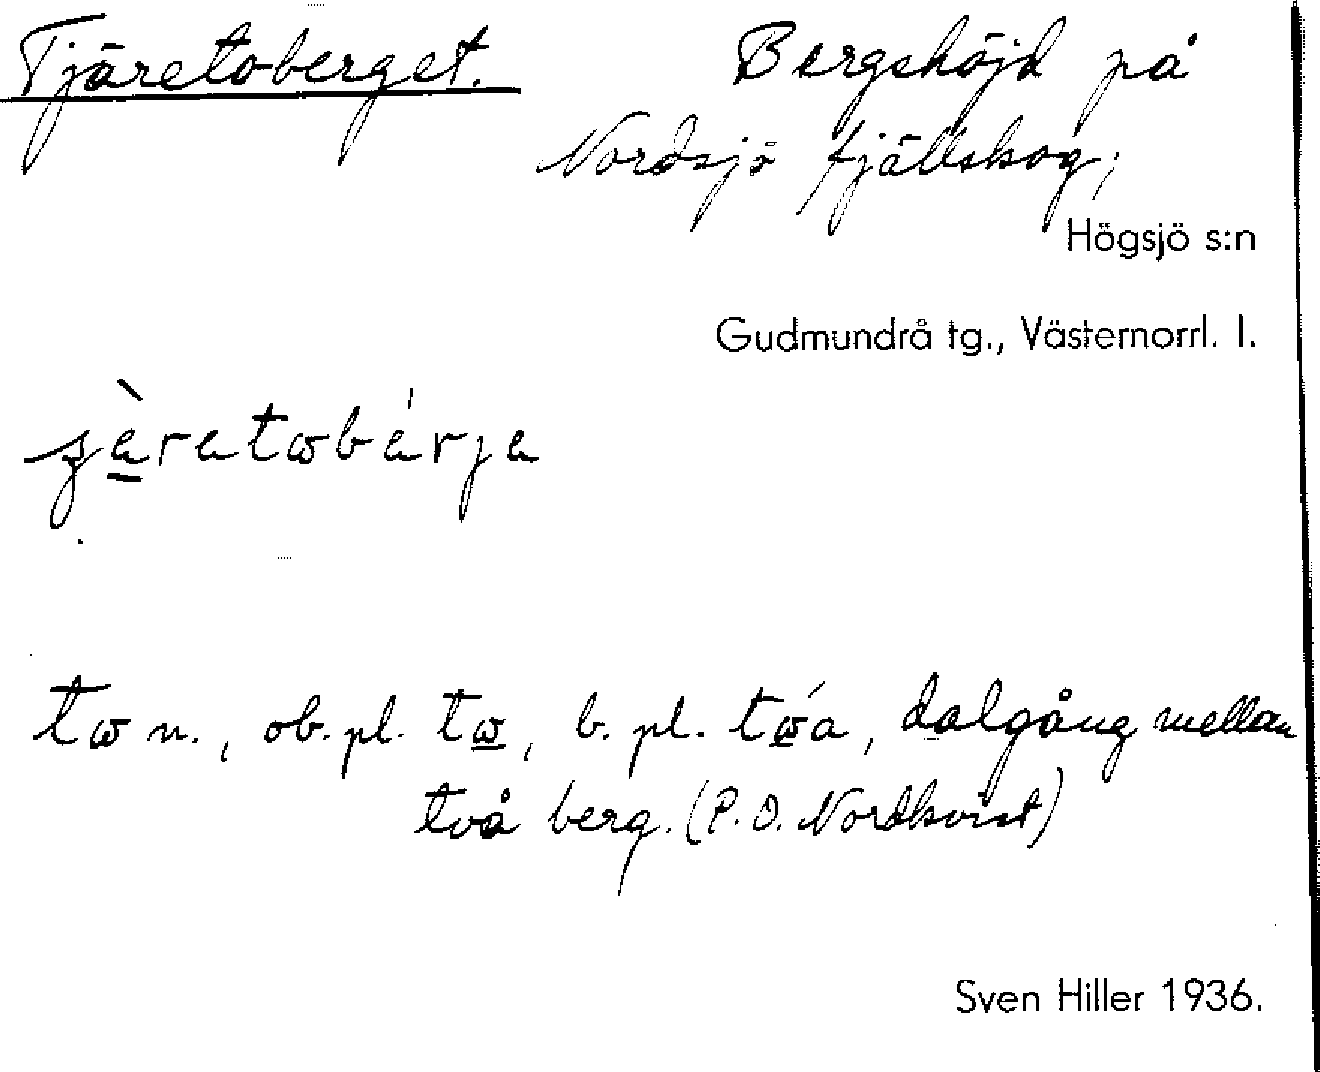 Tjäretoberget. Bergshöjd på
Nordsjö fjällskog;
Högsjö s:n
Gudmundrå tg., Västernorrl. l.
tɷ n., ob. pl. tɷ̲, b. pl. tɷ̲́a, dalgång mellan
två berg. (P. O. Nordkvist)
Sven Hiller 1936.